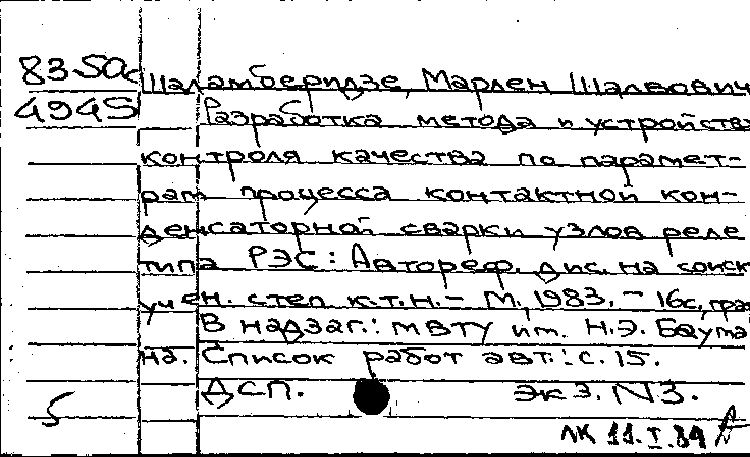 83-5Ас Шаламберидзе, Марлен Шалвович
4945 Разработка метода и устройства
контроля качества по парамет-
рам процесса контактной кон-
денсаторной сварки узлов реле
типа РЭС: Автореф. дис. на соиск.
учен. степ. к.т.н. - М., 1983. - 16с., граф
В надзаг.: МВТУ им. Н.Э. Баума
на. Список работ авт.: с. 15.
ДСП. Экз. N3.
5
ЛК 11.I.84